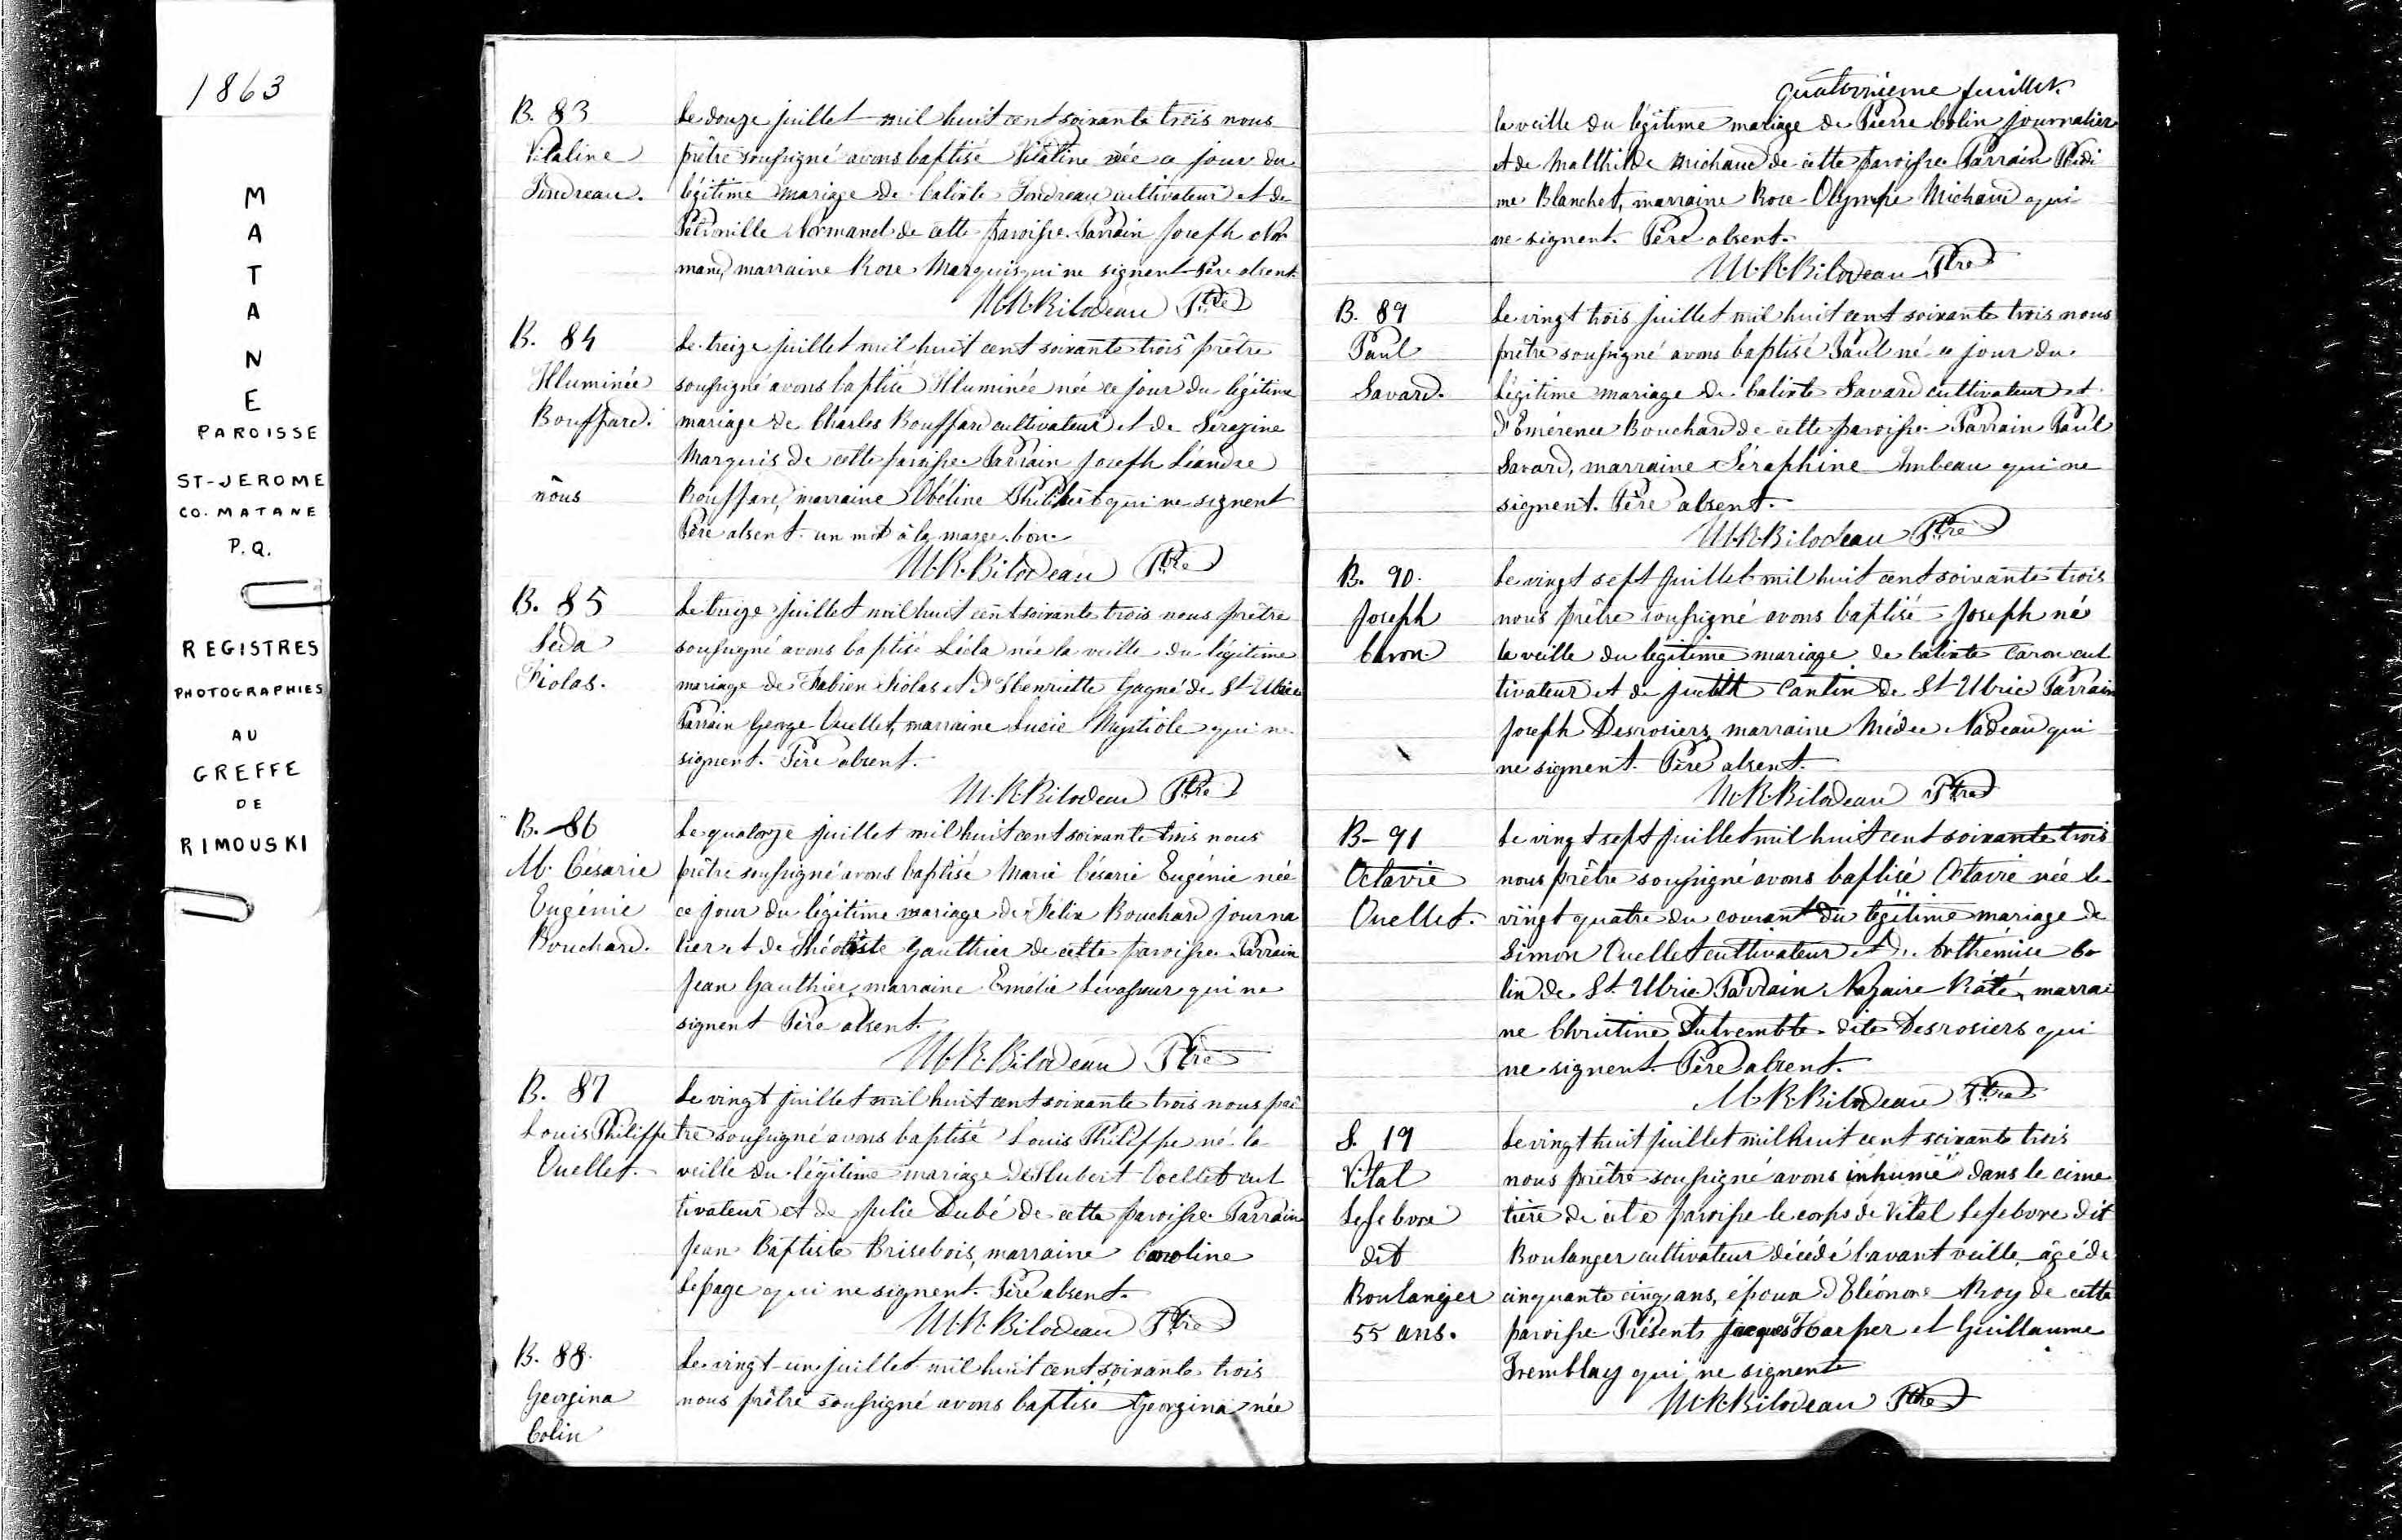 1863
M
A
T
A
N
E
PAROISSE
ST-JEROME
CO. MATANE
P.Q.
REGISTRES
PHOTOGRAPHIES
AU
GREFFE
DE
RIMOUSKI
B. 83
Vitaline
Le douze juillet mil huit cent soixante trois nous
prêtre soussigné avons baptisé Vitaline née ce jour du
légitime mariage de Calixte cultivateur et de
Pétronille Normand de cette paroisse. Parrain Joseph Nor
mand, marraine Rose Marquis qui ne signent Père absent.
M.R. Bilodeau Ptre
B. 84
Illuminée
Bouffard.
nous
Le treize juillet mil huit cent soixante trois prêtre
soussigné avons baptisé Illuminée née ce jour du légitime
mariage de Charles Bouffard cultivateur et de Sérazine
Marquis de cette paroisse Parrain Joseph Léandre
Bouffard, marraine Obéline qui ne signent
Père absent. un mot à la marge bon.
M.R. Bilodeau Ptre
B. 85
Léda
Fiolas.
Le treize juillet mil huit cent soixante trois nous prêtre
soussigné avons baptisé Léda née la veille du légitime
mariage de Fabien Fiolas et d'Henriette Gagné de St Ulric
Parrain George Ouellet, marraine Lucie qui ne
signent. Père absent.
M.R. Bilodeau Ptre
B. 86
M. Césarie
Eugénie
Bouchard.
Le quatorze juillet mil huit cent soixante trois nous
prêtre soussigné avons baptisé Marie Césarie Eugénie née
ce jour du légitime mariage de Félix Bouchard journa
lier et de Théotiste Gauthier de cette paroisse. Parrain
Jean Gauthier, marraine Emélie Levasseur qui ne
signent Père absent.
M.R. Bilodeau Ptre
B. 87
Louis Philippe
Ouellet.
Le vingt juillet mil huit cent soixante trois nous prê
tre soussigné avons baptisé Louis Philippe né la
veille du légitime mariage de Hubert Ouellet cul
tivateur et de Julie Dubé de cette paroisse. Parrain
Jean Baptiste Brisebois, marraine Caroline
Lepage qui ne signent. Père absent.
M.R. Bilodeau Ptre
B. 88.
Georgina
Colin
Le vingt-un juillet mil huit cent soixante trois
nous prêtre soussigné avons baptisé Georgina née
quatorzième feuillet.
la veille du légitime mariage de Pierre Colin journalier
et de Malthilde Michaud de cette paroisse Parrain
me Blanchet, marraine Rose-Olympe Michaud qui
ne signent. Père absent.
M.R. Bilodeau Ptre
B. 89
Paul
Savard.
Le vingt trois juillet mil huit cent soixante trois nous
prêtre soussigné avons baptisé Paul né ce jour du
légitime mariage de Calixte Savard cultivateur et
d'Emérence Bouchard de cette paroisse Parrain Paul
Savard, marraine Séraphine Imbeau qui ne
signent. Père absent.
M.R. Bilodeau Ptre
B. 90.
Joseph
Caron
Le vingt sept juillet mil huit cent soixante trois
nous prêtre soussigné avons baptisé Joseph né
la veille du légitime mariage de Calixte Caron cul
tivateur et de Judith Cantin de St Ulric Parrain
Joseph Desrosiers, marraine Médée Nadeau qui
ne signent. Père absent.
M.R. Bilodeau Ptre
B-91
Octavie
Ouellet.
Le vingt sept juillet mil huit cent soixante trois
nous prêtre soussigné avons baptisé Octavie née le
vingt quatre du courant du légitime mariage de
Simon Ouellet cultivateur et d'Arthémise Co
lin de St. Ulric Parrain Nazaire Raté, marrai
ne Christine Dutremble dite Desrosiers qui
ne signent. Père absent.
M.R. Bilodeau Ptre
S. 19
Vital
Lefebvre
dit
Boulanger
55 ans.
Le vingt huit juillet mil huit cent soixante trois
nous prêtre soussigné avons inhumé dans le cime
tière de cete paroisse le corps de Vital Lefebvre dit
Boulanger cultivateur décédé l'avant veille, âgé de
cinquante cinq ans, époux d'Eléonore Roy de cette
paroisse Présents Jacques Harper et Guillaume
Tremblay qui ne signent
M.R. Bilodeau Ptre